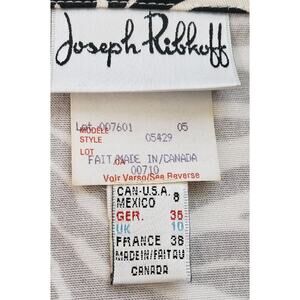 Joseph Ribkoff
Lot 007601 05
MODELE
STYLE 05429
LOT
CA
FAIT/MADE IN/CANADA
00710
Voir Verso/See Reverse
CAN-U.S.A. 8
MEXICO
GER. 36
UK 10
FRANCE 38
MADEIN/FAITAU
CANADA